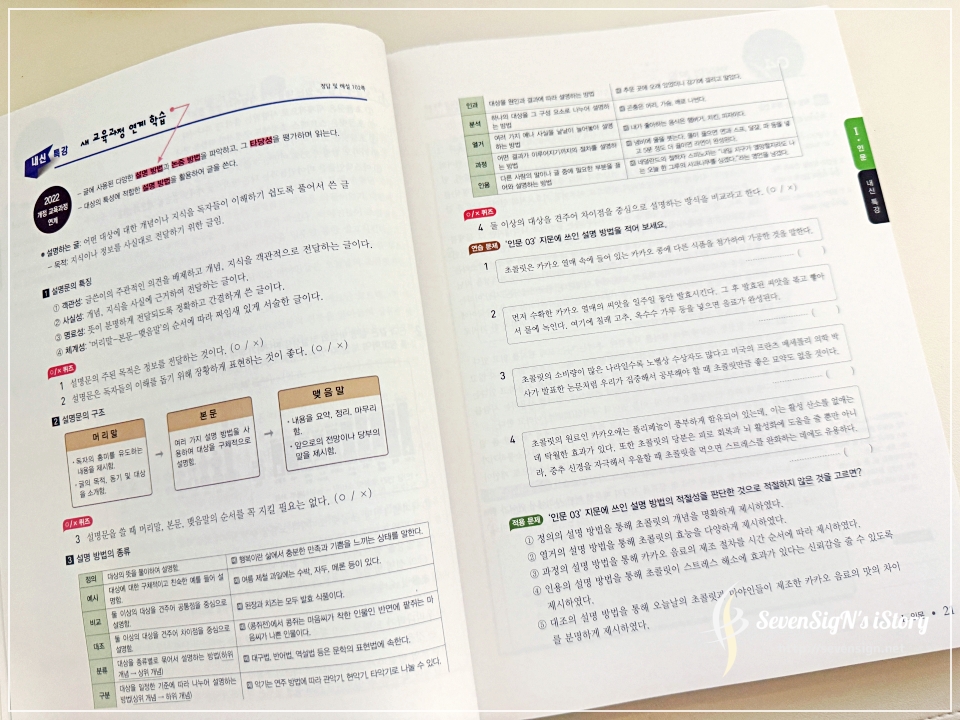 정답 및 해설 102쪽
내신 특강
새 교육과정 연계 학습
2022
개정 교육과정
연계
- 글에 사용된 다양한 설명 방법과 논증 방법을 파악하고, 그 타당성을 평가하며 읽는다.
- 대상의 특성에 적합한 설명 방법을 활용하여 글을 쓴다.
• 설명하는 글: 어떤 대상에 대한 개념이나 지식을 독자들이 이해하기 쉽도록 풀어서 쓴 글
- 목적: 지식이나 정보를 사실대로 전달하기 위한 글임.
1 설명문의 특징
① 객관성: 글쓴이의 주관적인 의견을 배제하고 개념, 지식을 객관적으로 전달하는 글이다.
② 사실성: 개념, 지식을 사실에 근거하여 전달하는 글이다.
③ 명료성: 뜻이 분명하게 전달되도록 정확하고 간결하게 쓴 글이다.
④ 체계성: '머리말-본문-맺음말'의 순서에 따라 짜임새 있게 서술한 글이다.
○/× 퀴즈
1 설명문의 주된 목적은 정보를 전달하는 것이다. (○ / ×)
2 설명문은 독자들의 이해를 돕기 위해 장황하게 표현하는 것이 좋다. (○ / ×)
2 설명문의 구조
머리말
• 독자의 흥미를 유도하는
내용을 제시함.
• 글의 목적, 동기 및 대상
을 소개함.
본문
여러 가지 설명 방법을 사
용하여 대상을 구체적으로
설명함.
맺음말
• 내용을 요약, 정리, 마무리
함.
• 앞으로의 전망이나 당부의
말을 제시함.
○/× 퀴즈
3 설명문을 쓸 때 머리말, 본문, 맺음말의 순서를 꼭 지킬 필요는 없다. (○ / ×)
3 설명 방법의 종류
정의 대상의 뜻을 풀이하여 설명함. 예 행복이란 삶에서 충분한 만족과 기쁨을 느끼는 상태를 말한다.
예시 대상에 대한 구체적이고 친숙한 예를 들어 설
명함. 예 여름 제철 과일에는 수박, 자두, 메론 등이 있다.
비교 둘 이상의 대상을 견주어 공통점을 중심으로
설명함. 예 된장과 치즈는 모두 발효 식품이다.
대조 둘 이상의 대상을 견주어 차이점을 중심으로
설명함. 예 〈콩쥐전〉에서 콩쥐는 마음씨가 착한 인물인 반면에 팥쥐는 마
음씨가 나쁜 인물이다.
분류 대상을 종류별로 묶어서 설명하는 방법(하위
개념 → 상위 개념) 예 대구법, 반어법, 역설법 등은 문학의 표현법에 속한다.
구분 대상을 일정한 기준에 따라 나누어 설명하는
방법(상위 개념 → 하위 개념) 예 악기는 연주 방법에 따라 관악기, 현악기, 타악기로 나눌 수 있다.
인과 대상을 원인과 결과에 따라 설명하는 방법 예 추운 곳에 오래 있었더니 감기에 걸리고 말았다.
분석 하나의 대상을 그 구성 요소로 나누어 설명하
는 방법 예 곤충은 머리, 가슴, 배로 나뉜다.
열거 여러 가지 예나 사실을 낱낱이 늘어놓아 설명
하는 방법 예 내가 좋아하는 음식은 햄버거, 치킨, 피자이다.
과정 어떤 결과가 이루어지기까지의 절차를 설명하
는 방법 예 냄비에 물을 붓는다. 물이 끓으면 면과 스프, 달걀, 파 등을 넣
고 5분 정도 더 끓이면 라면이 완성된다.
인용 다른 사람의 말이나 글 중에 필요한 부분을 끌
어와 설명하는 방법 예 네덜란드의 철학자 스피노자는 "내일 지구가 멸망할지라도 나
는 오늘 한 그루의 사과나무를 심겠다."라는 명언을 남겼다.
○/× 퀴즈
4 둘 이상의 대상을 견주어 차이점을 중심으로 설명하는 방식을 비교라고 한다. (○ / ×)
연습 문제 '인문 03' 지문에 쓰인 설명 방법을 적어 보세요.
1 초콜릿은 카카오 열매 속에 들어 있는 카카오 콩에 다른 식품을 첨가하여 가공한 것을 말한다.
( )
2 먼저 수확한 카카오 열매의 씨앗을 일주일 동안 발효시킨다. 그 후 발효된 씨앗을 볶고 빻아
서 물에 녹인다. 여기에 칠레 고추, 옥수수 가루 등을 넣으면 음료가 완성된다.
( )
3 초콜릿의 소비량이 많은 나라일수록 노벨상 수상자도 많다고 미국의 프란츠 메세를리 의학 박
사가 발표한 논문처럼 우리가 집중해서 공부해야 할 때 초콜릿만큼 좋은 묘약도 없을 것이다.
( )
4 초콜릿의 원료인 카카오에는 폴리페놀이 풍부하게 함유되어 있는데, 이는 활성 산소를 없애는
데 탁월한 효과가 있다. 또한 초콜릿의 당분은 피로 회복과 뇌 활성화에 도움을 줄 뿐만 아니
라, 중추 신경을 자극해서 우울할 때 초콜릿을 먹으면 스트레스를 완화하는 데에도 유용하다.
( )
적용 문제 '인문 03' 지문에 쓰인 설명 방법의 적절성을 판단한 것으로 적절하지 않은 것을 고르면?
① 정의의 설명 방법을 통해 초콜릿의 개념을 명확하게 제시하였다.
② 열거의 설명 방법을 통해 초콜릿의 효능을 다양하게 제시하였다.
③ 과정의 설명 방법을 통해 카카오 음료의 제조 절차를 시간 순서에 따라 제시하였다.
④ 인용의 설명 방법을 통해 초콜릿이 스트레스 해소에 효과가 있다는 신뢰감을 줄 수 있도록
제시하였다.
⑤ 대조의 설명 방법을 통해 오늘날의 초콜릿과 마야인들이 제조한 카카오 음료의 맛의 차이
를 분명하게 제시하였다.
I·인문
내신 특강
인문 • 21
SevenSigN's iStory